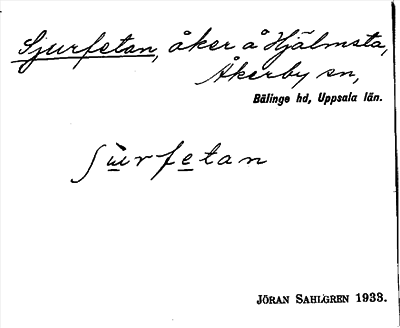 Sjurfetan, åker å Hjälmsta,
Åkerby sn,
Bälinge hd, Uppsala län.
ʃù̲rfe̲tan
JÖRAN SAHLGREN 1933.